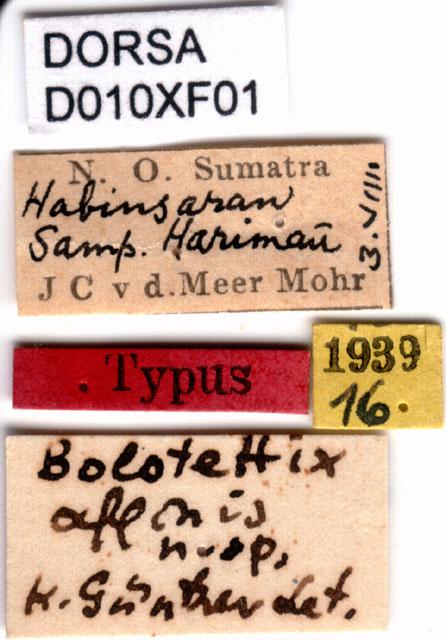 DORSA
D010XF01
N. O. Sumatra
Habinsaran
Samp. Harimau
J C v d. Meer Mohr
3. VIII
Typus
1939
16.
Bolotettix
affinis
n. sp.
K. Günther det.